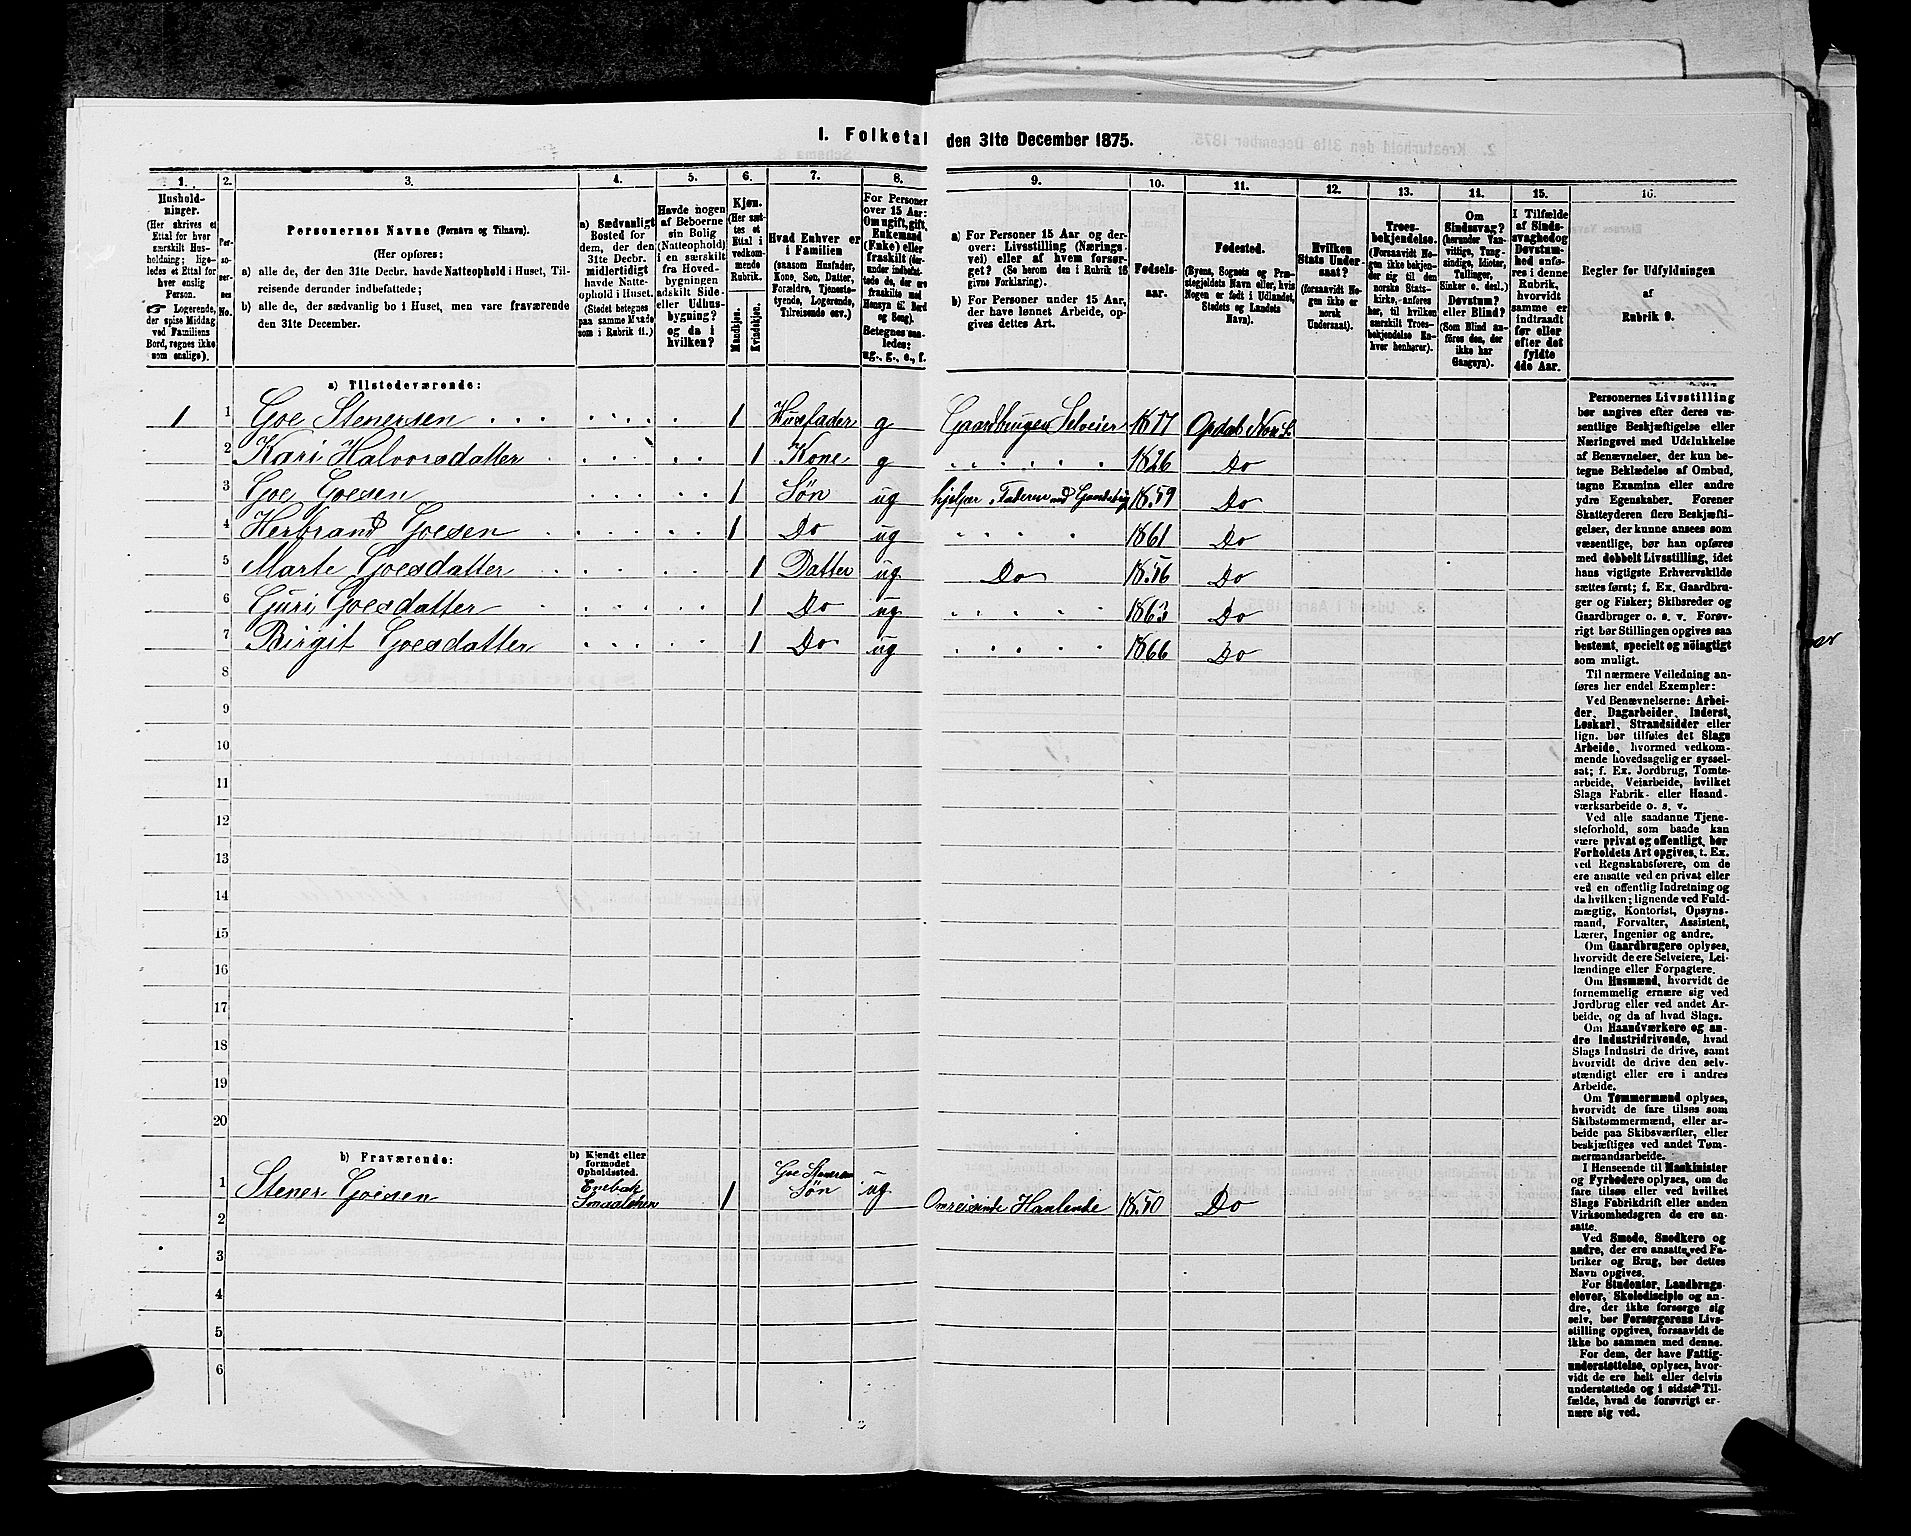 I. Folketal den 31te December 1875.
1. 2. 3. 4. 5. 6. 7. 8. 9. 10. 11. 12. 13. 14. 15. 16.
Hushold-
ninger.
(Her skrives et
Ettal for hver
særskilt Hus-
holdning; lige-
ledes et Ettal for
hver enslig
Person.
☞ Logerende,
der spise Middag
ved Familiens
Bord, regnes ikke
som enslige).
Per-
soner-
nes
No.
Personernes Navne (Fornavn og Tilnavn).
(Her opføres:
a) alle de, der den 31te Decbr. havde Natteophold i Huset, Til-
reisende derunder indbefattede;
b) alle de, der sædvanlig bo i Huset, men vare fraværende
den 31te December.
a) Sædvanligt
Bosted for
dem, der den
31te Decbr.
midlertidigt
havde Natte-
ophold i Huset.
(Stedet betegnes
paa samme Maade
som i Rubrik 11.)
Havde nogen
af Beboerne
sin Bolig
(Natteophold)
i en særskilt
fra Hoved-
bygningen
adskilt Side-
eller Udhus-
bygning?
og da i
hvilken?
Kjøn.
(Her sæt-
tes et
Ettal i
vedkom-
mende
Rubrik.
Mandkjøn.
Kvindekjøn.
Hvad Enhver er
i Familien
(saasom Husfader,
Kone, Søn, Datter,
Forældre, Tjeneste-
tyende, Logerende,
Tilreisende osv.)
For Personer
over 15 Aar:
Om ugift, gift,
Enkemand
(Enke) eller
fraskilt (der-
under indbefat-
tede de, der ere
fraskilte med
Hensyn til Bord
og Seng).
Betegnes saa-
ledes:
ug., g., e., f.
a) For Personer 15 Aar og der-
over: Livsstilling (Nærings-
vei) eller af hvem forsør-
get? (Se herom den i Rubrik 16
givne Forklaring).
b) For Personer under 15 Aar,
der have lønnet Arbeide, op-
gives dettes Art.
Fødsels-
aar.
Fødested.
(Byens, Sognets og Præ-
stegjeldets Navn eller, hvis
Nogen er født i Udlandet,
Stedets og Landets
Navn).
Hvilken
Stats Under-
saat?
(forsaavidt No-
gen ikke er
norsk
Undersaat).
Troes-
bekjendelse.
(Forsaavidt No-
gen ikke bekjen-
der sig til den
norske Stats-
kirke, anføres
her, til hvilken
særskilt Troes-
bekjendelse En-
hver henhører).
Om
Sindssvag?
(herunder Van-
vittige, Tung-
sindige, Idioter,
Tullinger,
Sinker o. desl.)
Døvstum?
eller Blind?
(Som Blind an-
føres den, der
ikke har
Gangsyn).
I Tilfælde
af Sinds-
svaghed og
Døvstum-
hed anfø-
res i denne
Rubrik,
hvorvidt
samme er
indtraadt
før eller
efter det
fyldte
4de Aar.
Regler for Udfyldningen
af
Rubrik 9.
a) Tilstedeværende:
1 1 Goe Stenersen 1 Husfader g Gaardbruger Selveier 1817 Opdal
2 Kari Halvorsdatter 1 Kone g 1826 Do
3 Goe Goesen 1 Søn ug hjelper Faderen med Gaardsbrug 1859 Do
4 Herbrand Goesen 1 Do ug 1861 Do
5 Marte Goesdatter 1 Datter ug Do 1856 Do
6 Guri Goesdatter 1 Do ug 1863 Do
7 Birgit Goesdatter 1 Do ug 1866 Do
8
9
10
11
12
13
14
15
16
17
18
19
20
b) Fraværende:
b) Kjendt eller
formodet
Opholdssted.
1 Stener Goesen Enebak Smaalehnen 1 Goe Stenersen Søn ug Omreisende Handlende 1850 Do
2
3
4
5
6
Personernes Livsstilling
bør angives efter deres væ-
sentlige Beskjæftigelse eller
Næringsvei med Udelukkelse
af Benævnelser, der kun be-
tegne Beklædelse af Ombud,
tagne Examina eller andre
ydre Egenskaber. Forener
Skatteyderen flere Beskjæfti-
gelser, der kunne ansees som
væsentlige, bør han opføres
med dobbelt Livsstilling, idet
hans vigtigste Erhvervskilde
sættes først; f. Ex. Gaardbru-
ger og Fisker; Skibsreder og
Gaardbruger o. s. v. Forøv-
rigt bør Stillingen opgives saa
bestemt, specielt og nøiagtigt
som muligt.
Til nærmere Veiledning an-
føres her endel Exempler:
Ved Benævnelserne: Arbei-
der, Dagarbeider, Inderst,
Løskarl, Strandsidder eller
lign. bør tilføies det Slags
Arbeide, hvormed vedkom-
mende hovedsagelig er syssel-
sat; f. Ex. Jordbrug, Tomte-
arbeide, Veiarbeide, hvilket
Slags Fabrik- eller Haand-
værksarbeide o. s. v.
Ved alle saadanne Tjene-
steforhold, som baade kan
være privat og offentligt, bør
Forholdets Art opgives, t. Ex.
ved Regnskabsførere, om de
ere ansatte ved en privat eller
ved en offentlig Indretning og
da hvilken; lignende ved Fuld-
mægtig, Kontorist, Opsyns-
mand, Forvalter, Assistent,
Lærer, Ingeniør og andre.
Om Gaardbrugere oplyses,
hvorvidt de ere Selveiere, Lei-
lændinge eller Forpagtere.
Om Husmænd, hvorvidt de
fornemmelig ernære sig ved
Jordbrug eller ved andet Ar-
beide, og da af hvad Slags.
Om Haandværkere og an-
dre Industridrivende, hvad
Slags Industri de drive, samt
hvorvidt de drive den selv-
stændigt eller ere i andres
Arbeide.
Om Tømmermænd oplyses,
hvorvidt de fare tilsøs som
Skibstømmermænd, eller ar-
beide paa Skibsværfter, eller
beskjæftiges ved andet Tøm-
mermandsarbeide.
I Henseende til Maskinister
og Fyrbødere oplyses, om de
fare tilsøs eller ved hvilket
Slags Fabrikdrift eller anden
Virksomhedsgren de ere an-
satte.
Ved Smede, Snedkere og
andre, der ere ansatte ved Fa-
briker og Brug, bør dettes
Navn opgives.
For Studenter, Landbrugs-
elever, Skoledisciple og an-
dre, der ikke forsørge sig
selv, bør Forsørgerens Livs-
stilling opgives, forsaavidt de
ikke bo sammen med denne.
For dem, der have Fattig-
understøttelse, oplyses, hvor-
vidt de ere helt eller delvis
understøttede og i sidste Til-
fælde, hvad de forøvrigt er-
nære sig ved.